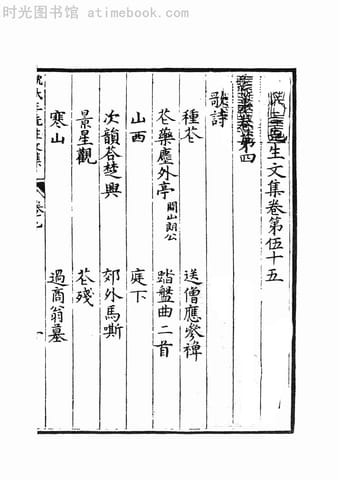 时光图书馆 atimebook.com
生文集卷第伍十五
第四
歌詩
種花 送僧應參禪
花藥塵外亭 開山朗公 踏盤曲二首
山西 庭下
次韻答楚興 郊外馬嘶
景星觀 花殘
寒山 過商翁墓